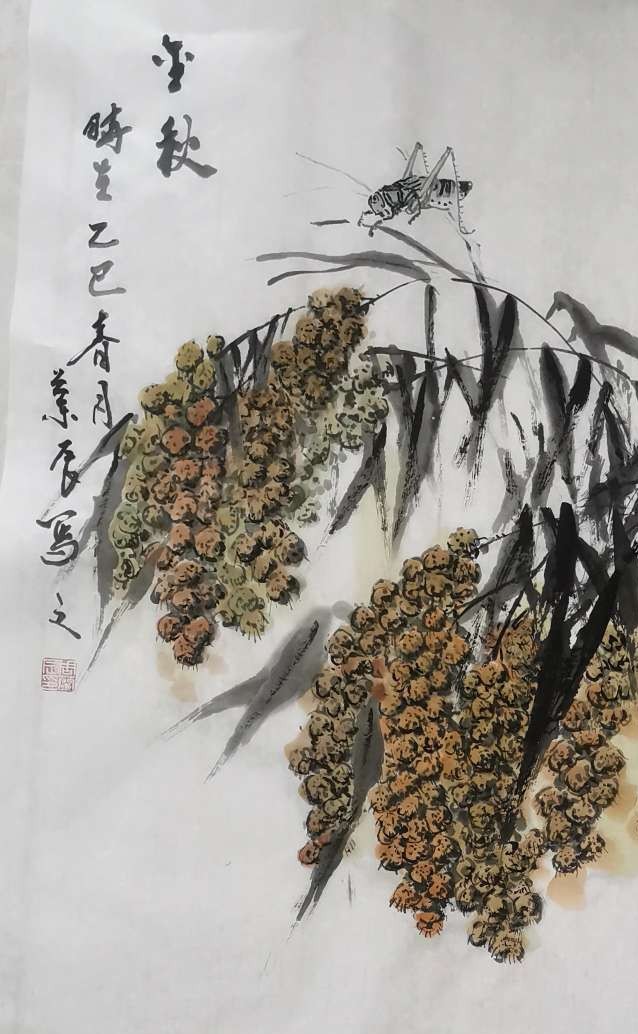 金秋
時在乙巳春月
辰写之